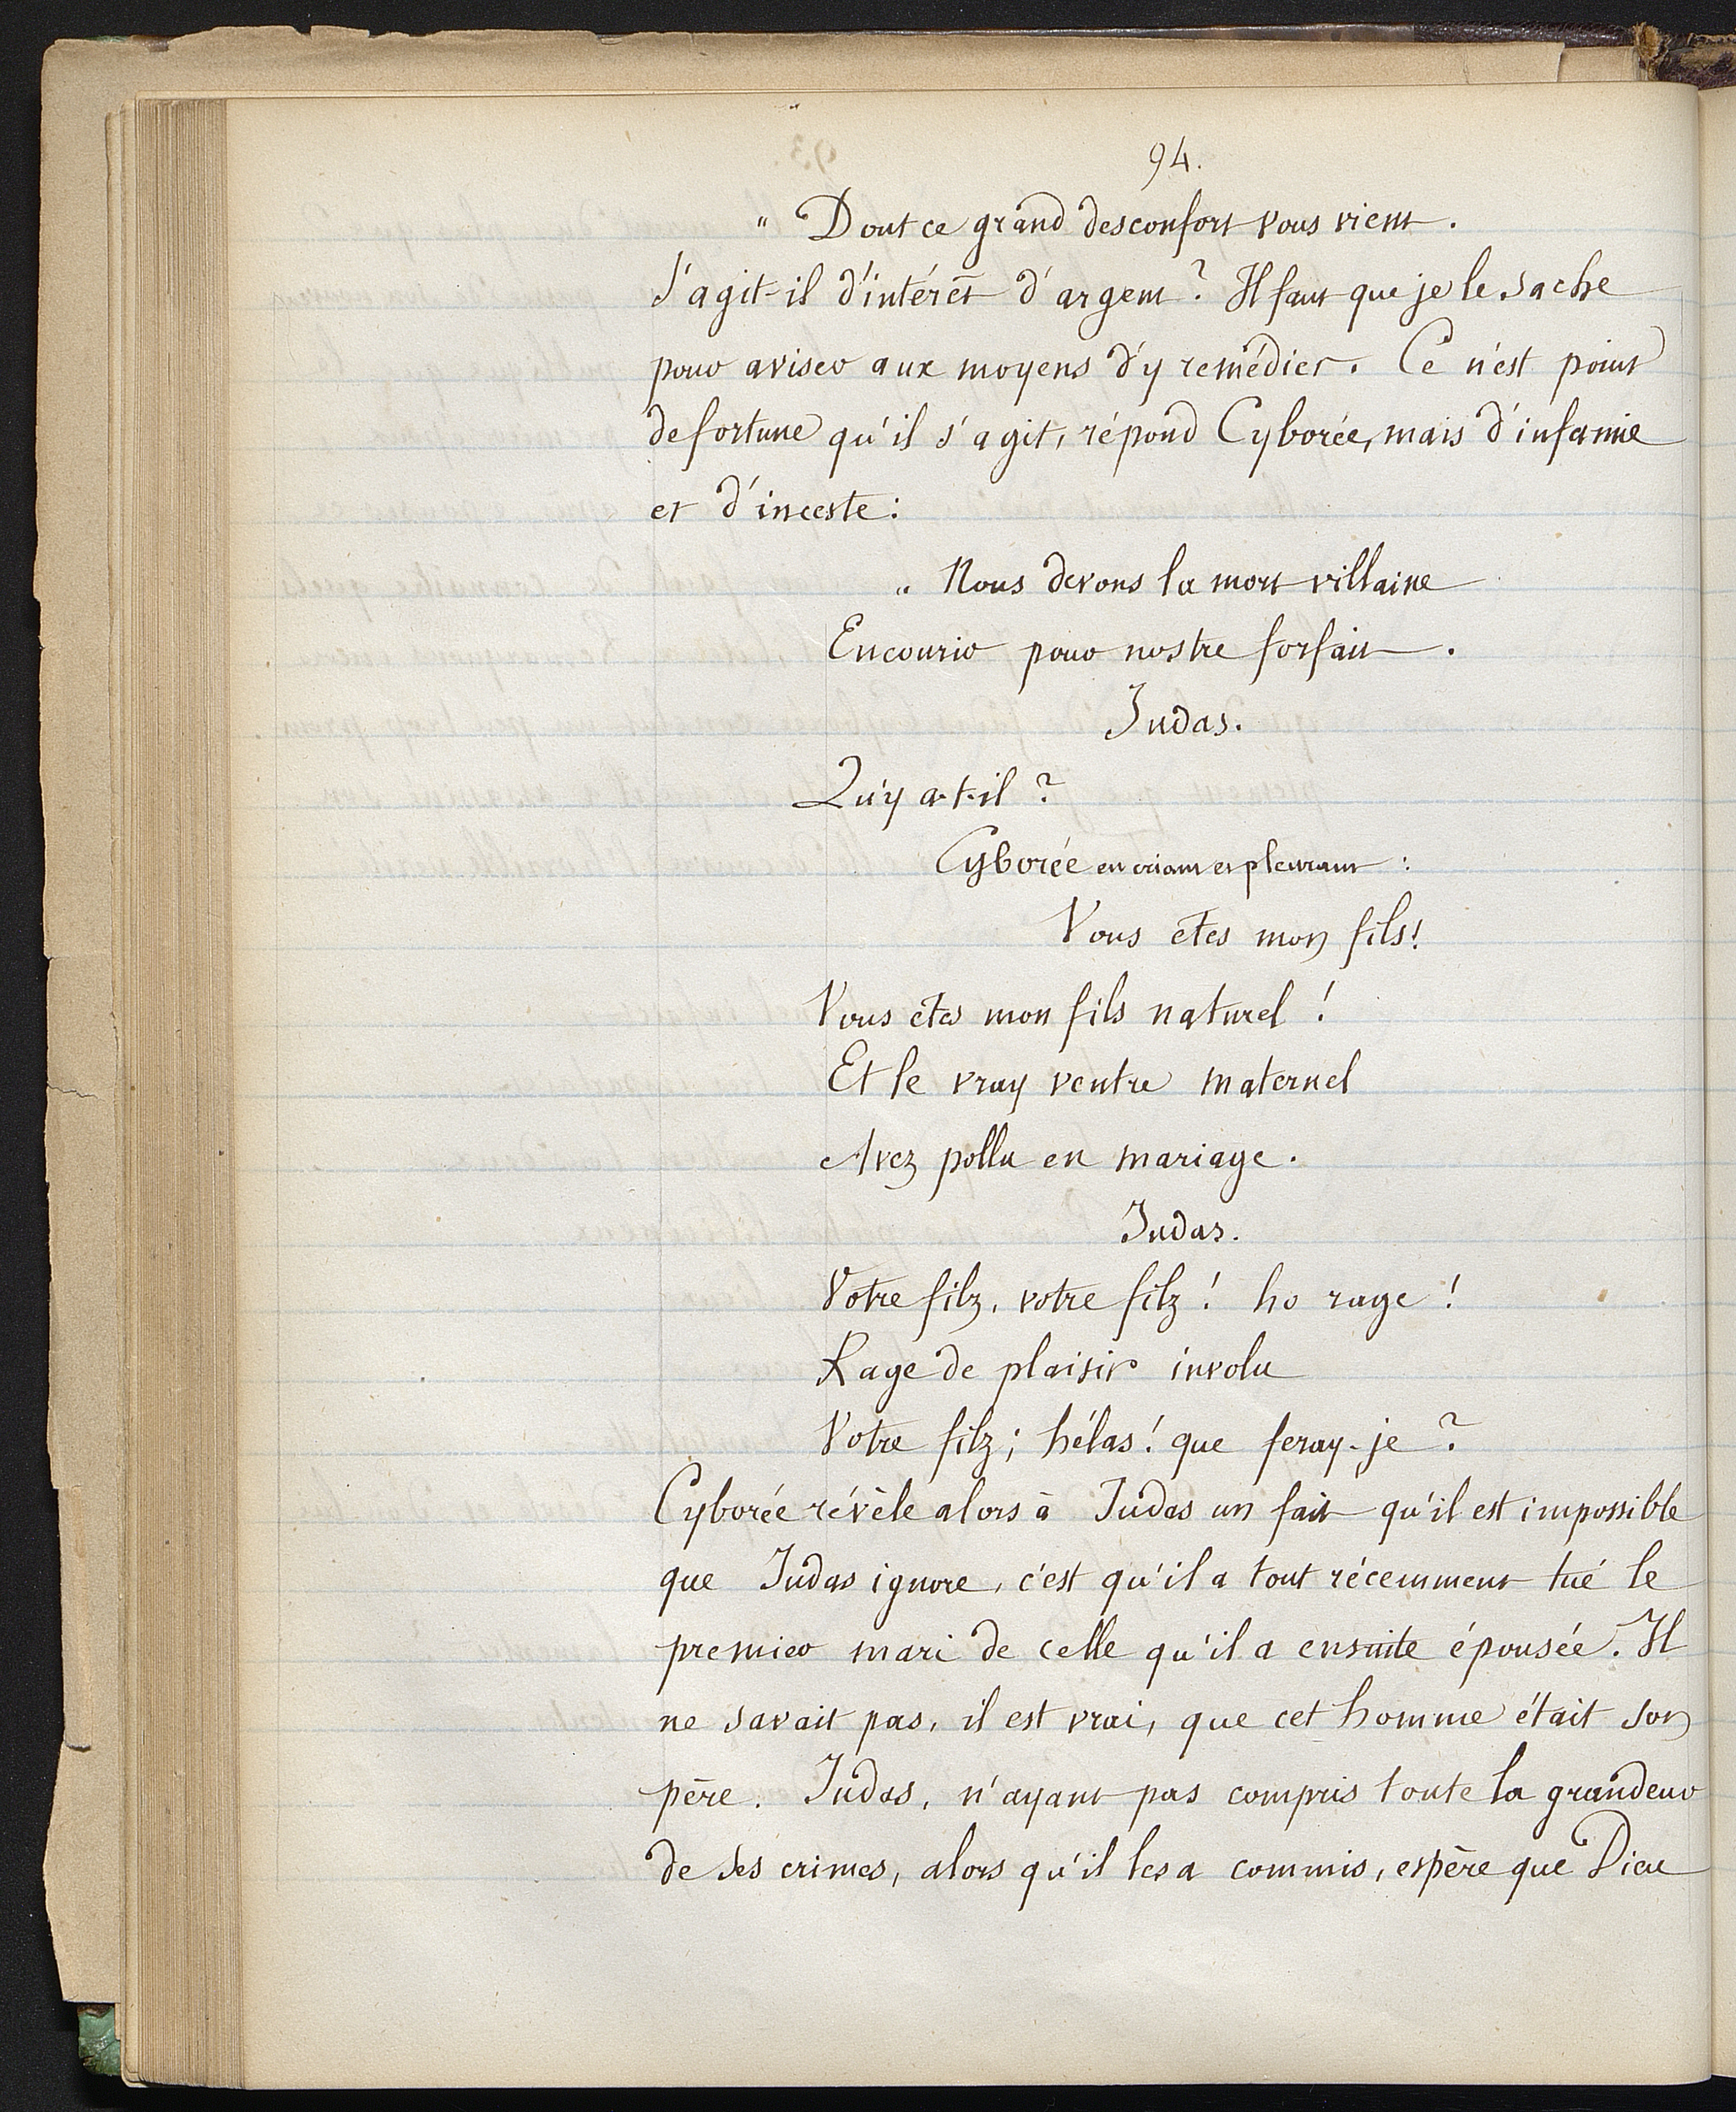 94.
" Dont ce grand desconfort vous vient.
S'agit-il d'intérêt d'argent ? Il faut que je le sache
pour aviser aux moyens d'y remédier. Ce n'est point
de fortune qu'il s'agit, répond Cyborée, mais d'infamie
et d'inceste :
" Nous devons la mort villaine
Encourir pour nostre forfait.
Judas.
Qu'y a-t-il ?
Cyborée en criant et pleurant :
Vous êtes mon fils !
Vous êtes mon fils naturel !
Et le vray ventre maternel
Avez pollu en mariage.
Judas.
Votre filz, votre filz ! ho rage !
Rage de plaisir involu
Votre filz ; hélas ! que feray-je ?
Cyborée révèle alors à Judas un fait qu'il est impossible
que Judas ignore, c'est qu'il a tout récemment tué le
premier mari de celle qu'il a ensuite épousée. Il
ne savait pas, il est vrai, que cet homme était son
père. Judas, n'ayant pas compris toute la grandeur
de ses crimes, alors qu'il les a commis, espère que Dieu